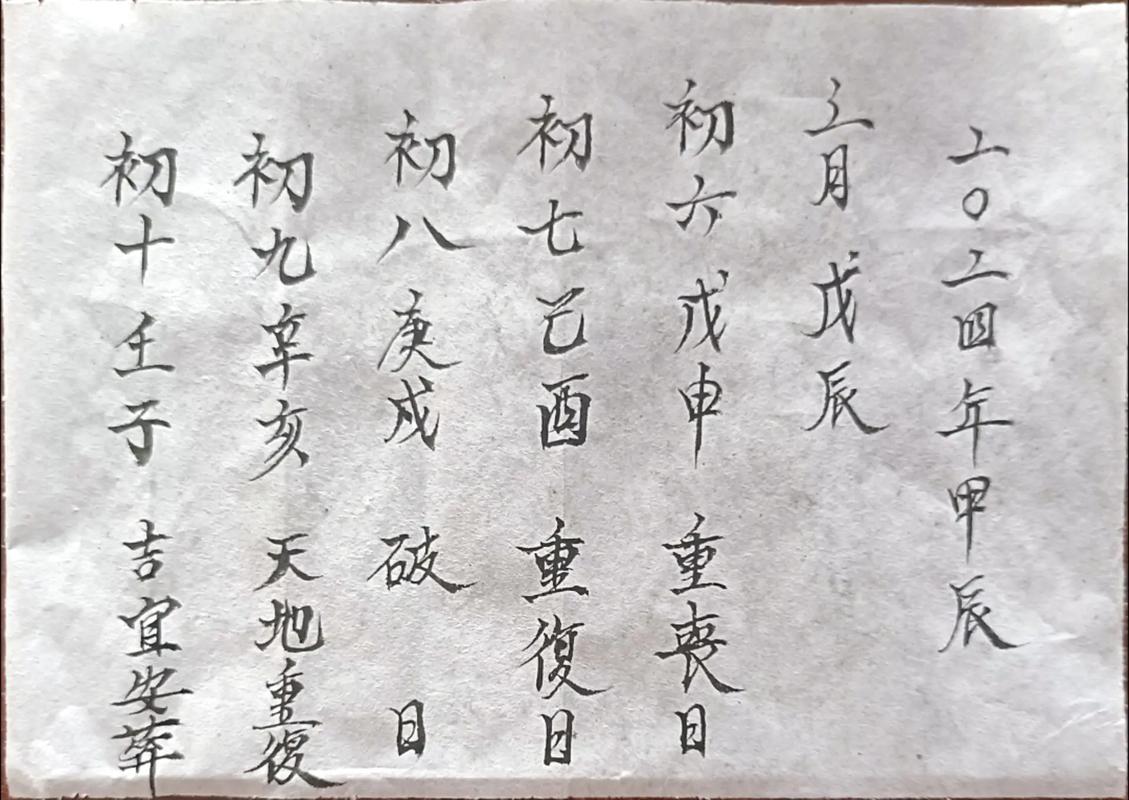 二〇二四年甲辰
三月 戊辰
初六戊申 重喪日
初七己酉 重復日
初八庚戌 破日
初九辛亥 天地重復
初十壬子 吉宜安葬